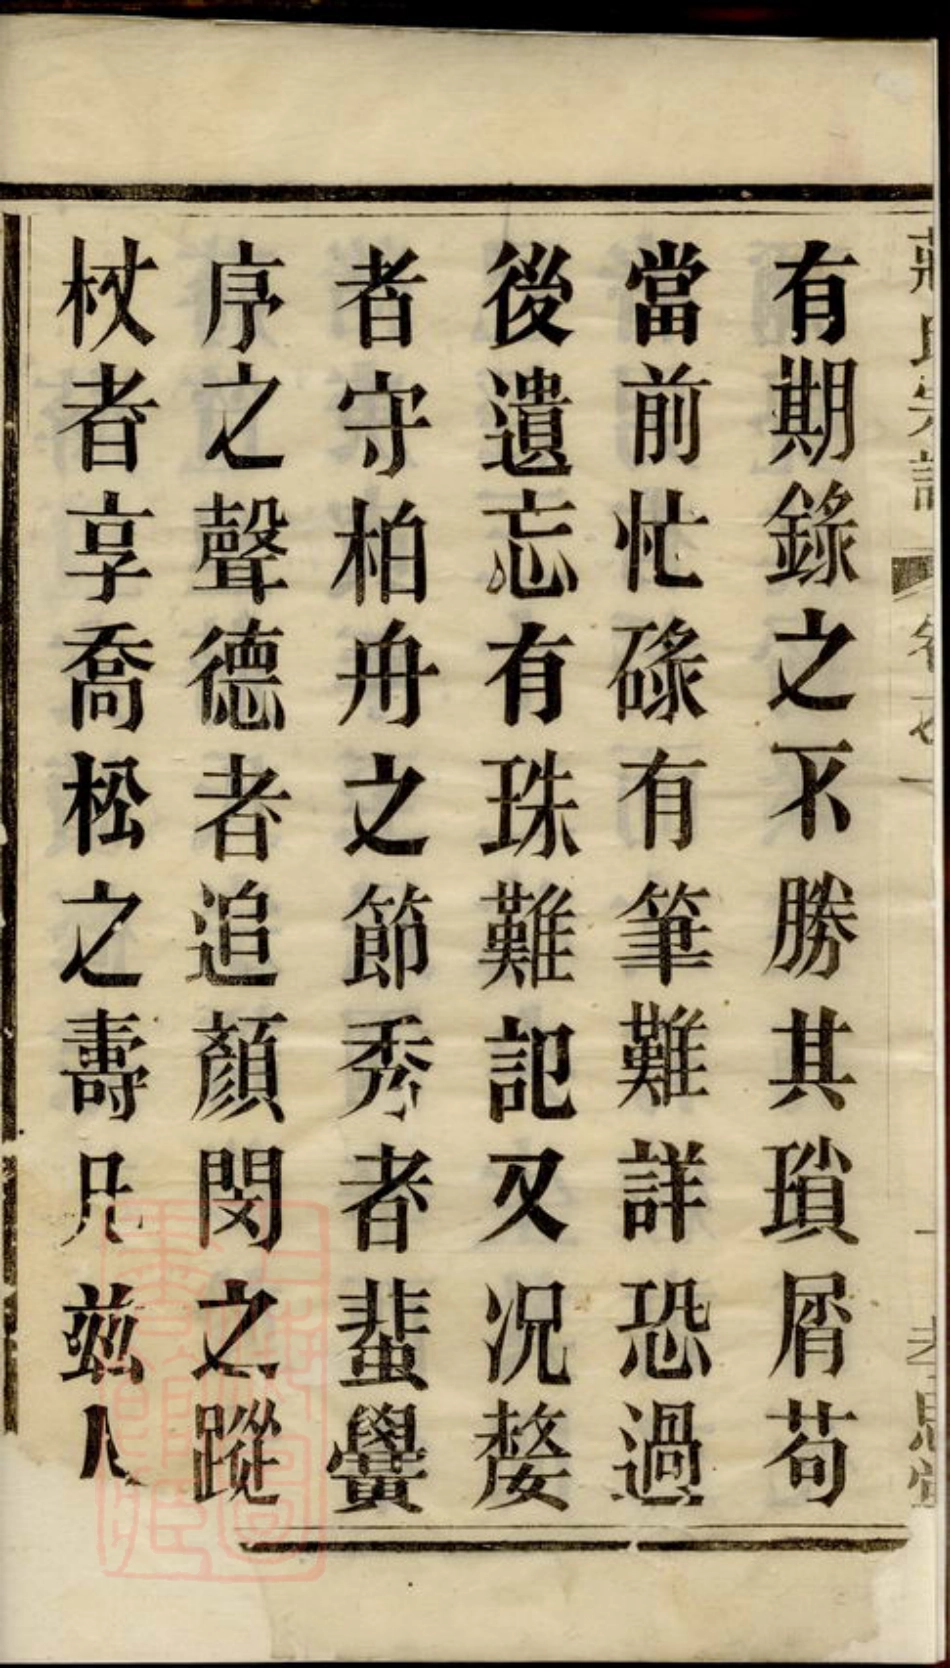 有期錄之不勝其瑣屑苟
當前忙碌有筆難詳恐過
後遺忘有珠難記又况嫠
者守柏舟之節秀者蜚黌
序之聲德者追顏閔之蹤
杖者享喬松之壽凡茲人